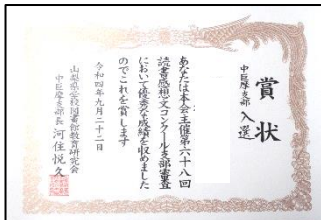 賞状
中巨摩支部 入選
あなたは本会主催第六十八回
読書感想文コンクール支部審査
において優秀な成績を収めました
のでこれを賞します
令和四年九月二十二日
山梨県学校図書館教育研究会
中巨摩支部長 河住悦久